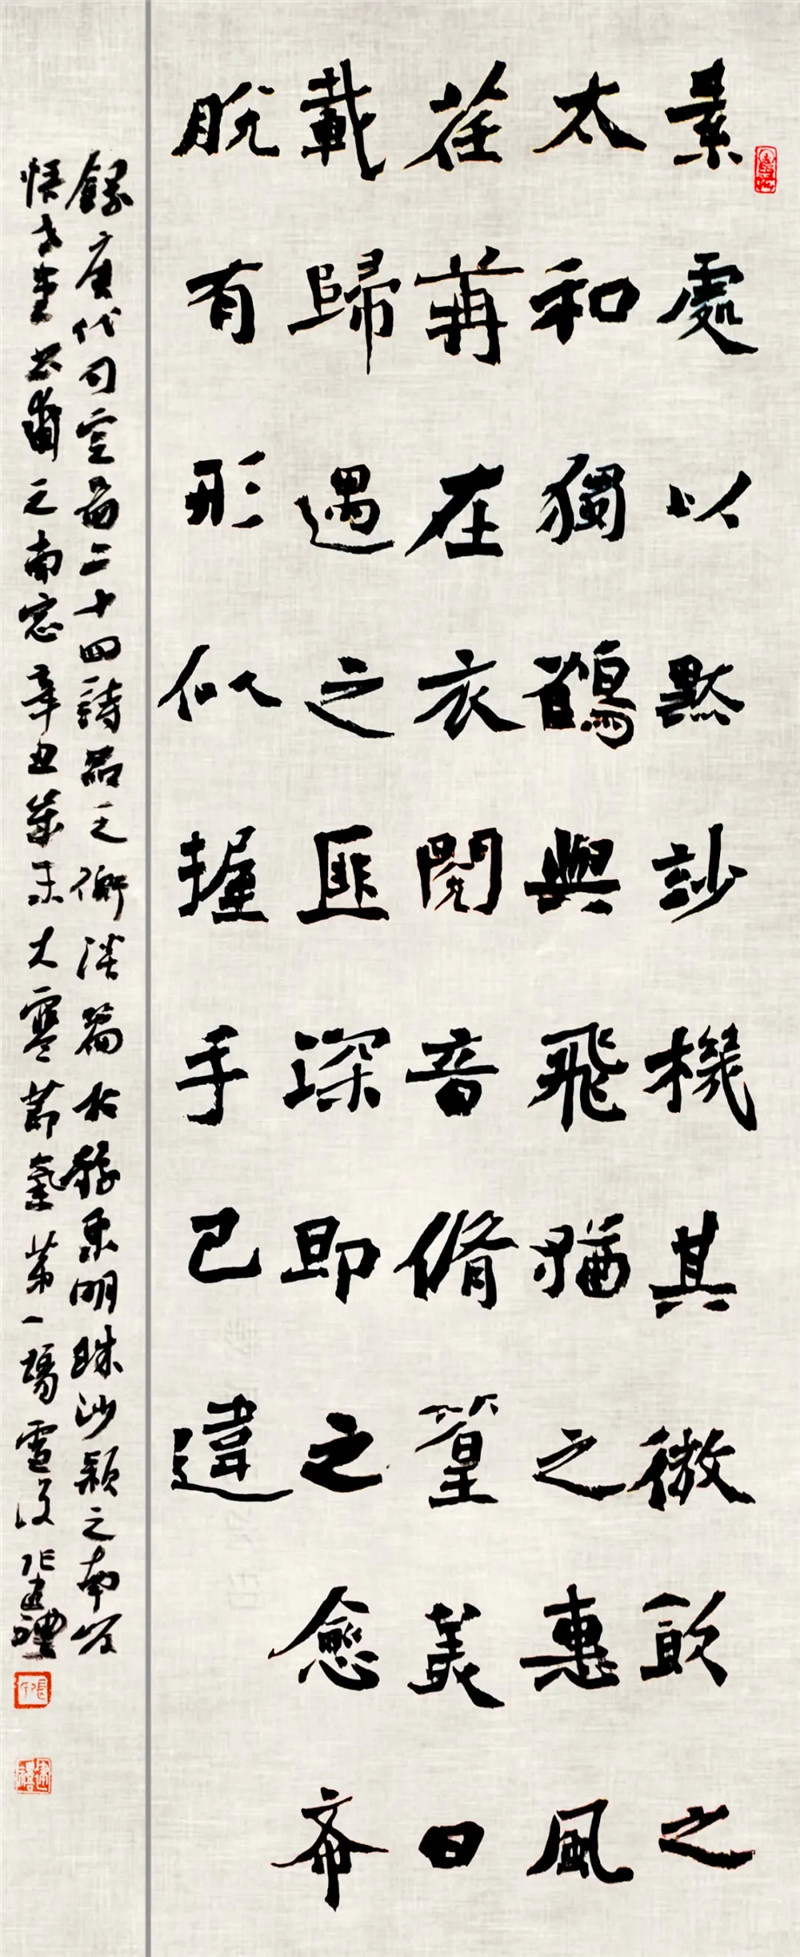 素處以默訬機其微飲之
太和獨鶴與飛猶之惠風
荏苒在衣閱音脩篁美曰
載歸遇之匪琛即之愈希
脫有形似握手已違
錄唐代司空圖二十四詩品之衝淡篇於豫東明珠沙潁之南岸
悟 堂 之南窗辛丑歲末大寒節氣第一場雪後張建禮